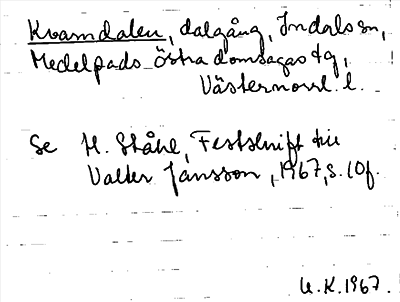 Kvarndalen, dalgång, Indals sn,
Medelpads östra domsagas tg,
Västernorrl. l.
Se H. Ståhl, Festskrift till
Valter Jansson, 1967, s. 10f.
U.K. 1967.